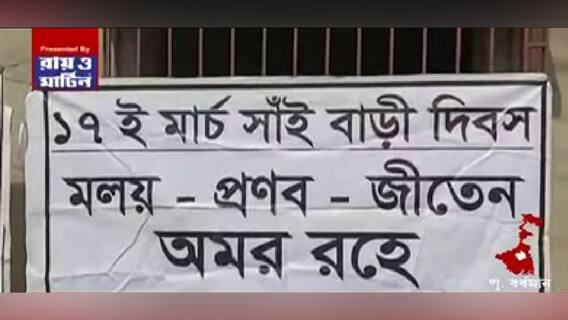 Presented By
রায় ও
মার্টিন
১৭ ই মার্চ সাঁই বাড়ী দিবস
মলয় - প্রণব - জীতেন
অমর রহে
পূ. বর্ধমান